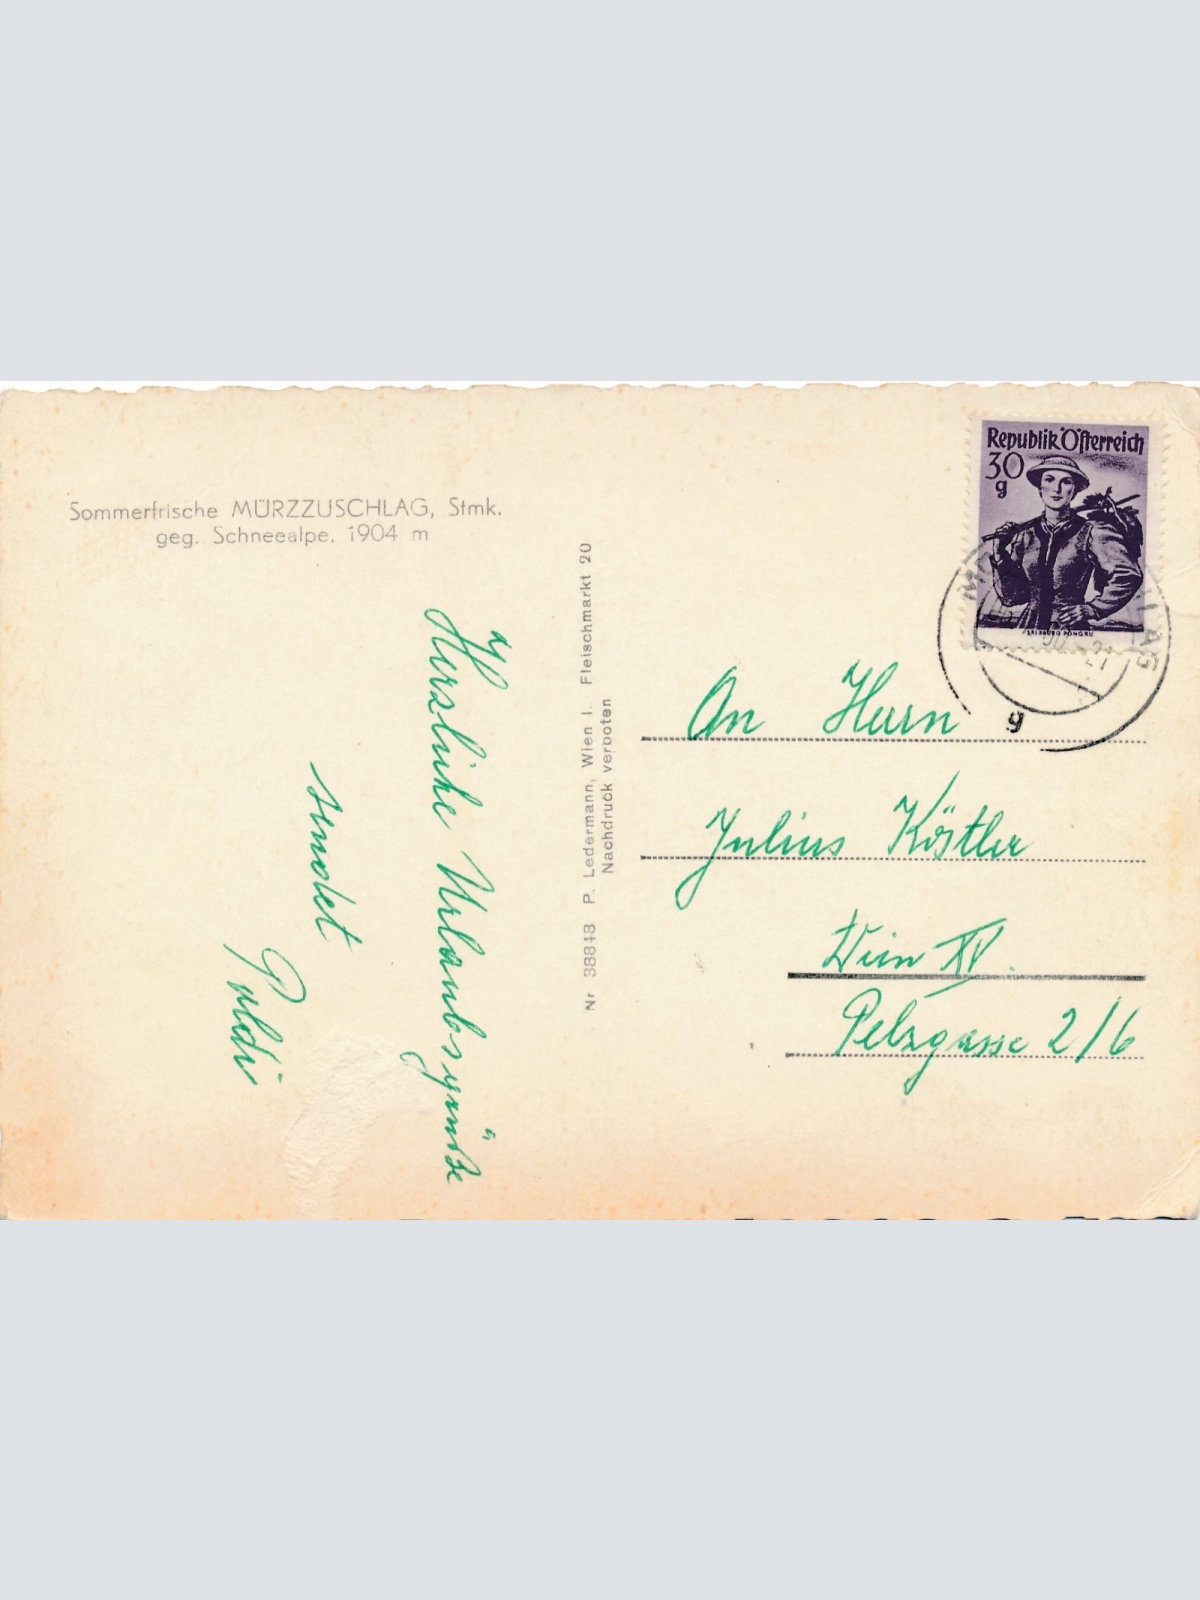 Sommerfrische MÜRZZUSCHLAG, Stmk.
geg. Schneealpe. 1904 m
Herzliche Urlaubsgrüße
sendet
Poldi
Nr 38848 P. Ledermann, Wien I. Fleischmarkt 20
Nachdruck verboten
Republik Österreich
30
g
SALZBURG PONGAU
g
An Herrn
Julius Köstler
Wien XV.
Pelzgasse 2/6